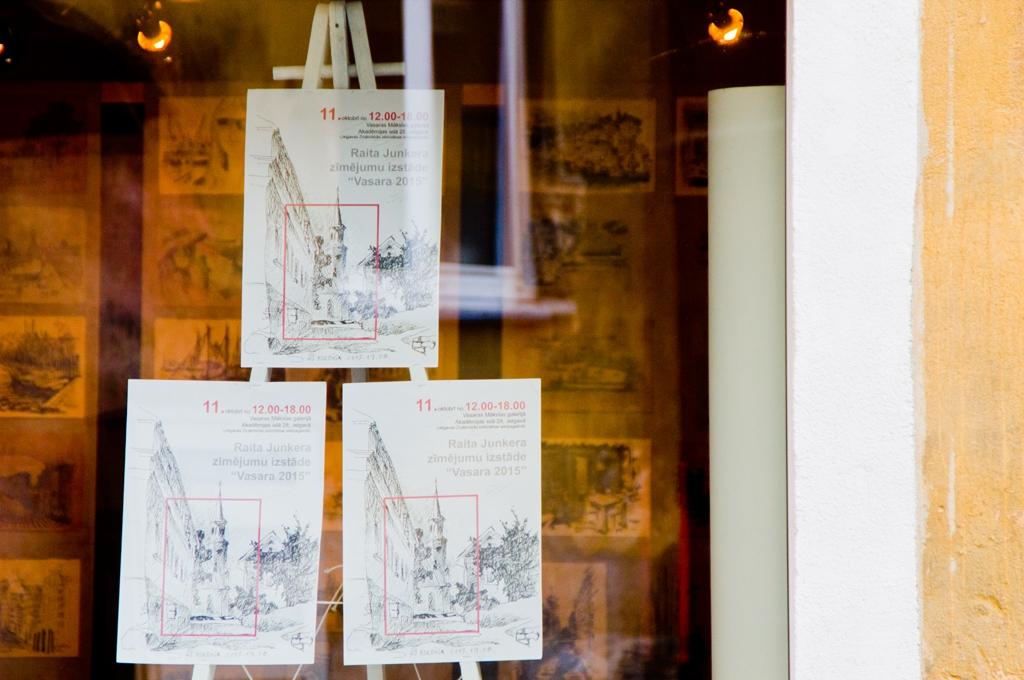 11. oktobrī no 12.00-18.00
Vasaras Mākslas galerijā
Akadēmijas ielā 28, Jelgavā
Raita Junkera
zīmējumu izstāde
"Vasara 2015"
11. oktobrī no 12.00-18.00
Vasaras Mākslas galerijā
Akadēmijas ielā 28, Jelgavā
Raita Junkera
zīmējumu izstāde
"Vasara 2015"
11. oktobrī no 12.00-18.00
Vasaras Mākslas galerijā
Akadēmijas ielā 28, Jelgavā
Raita Junkera
zīmējumu izstāde
"Vasara 2015"